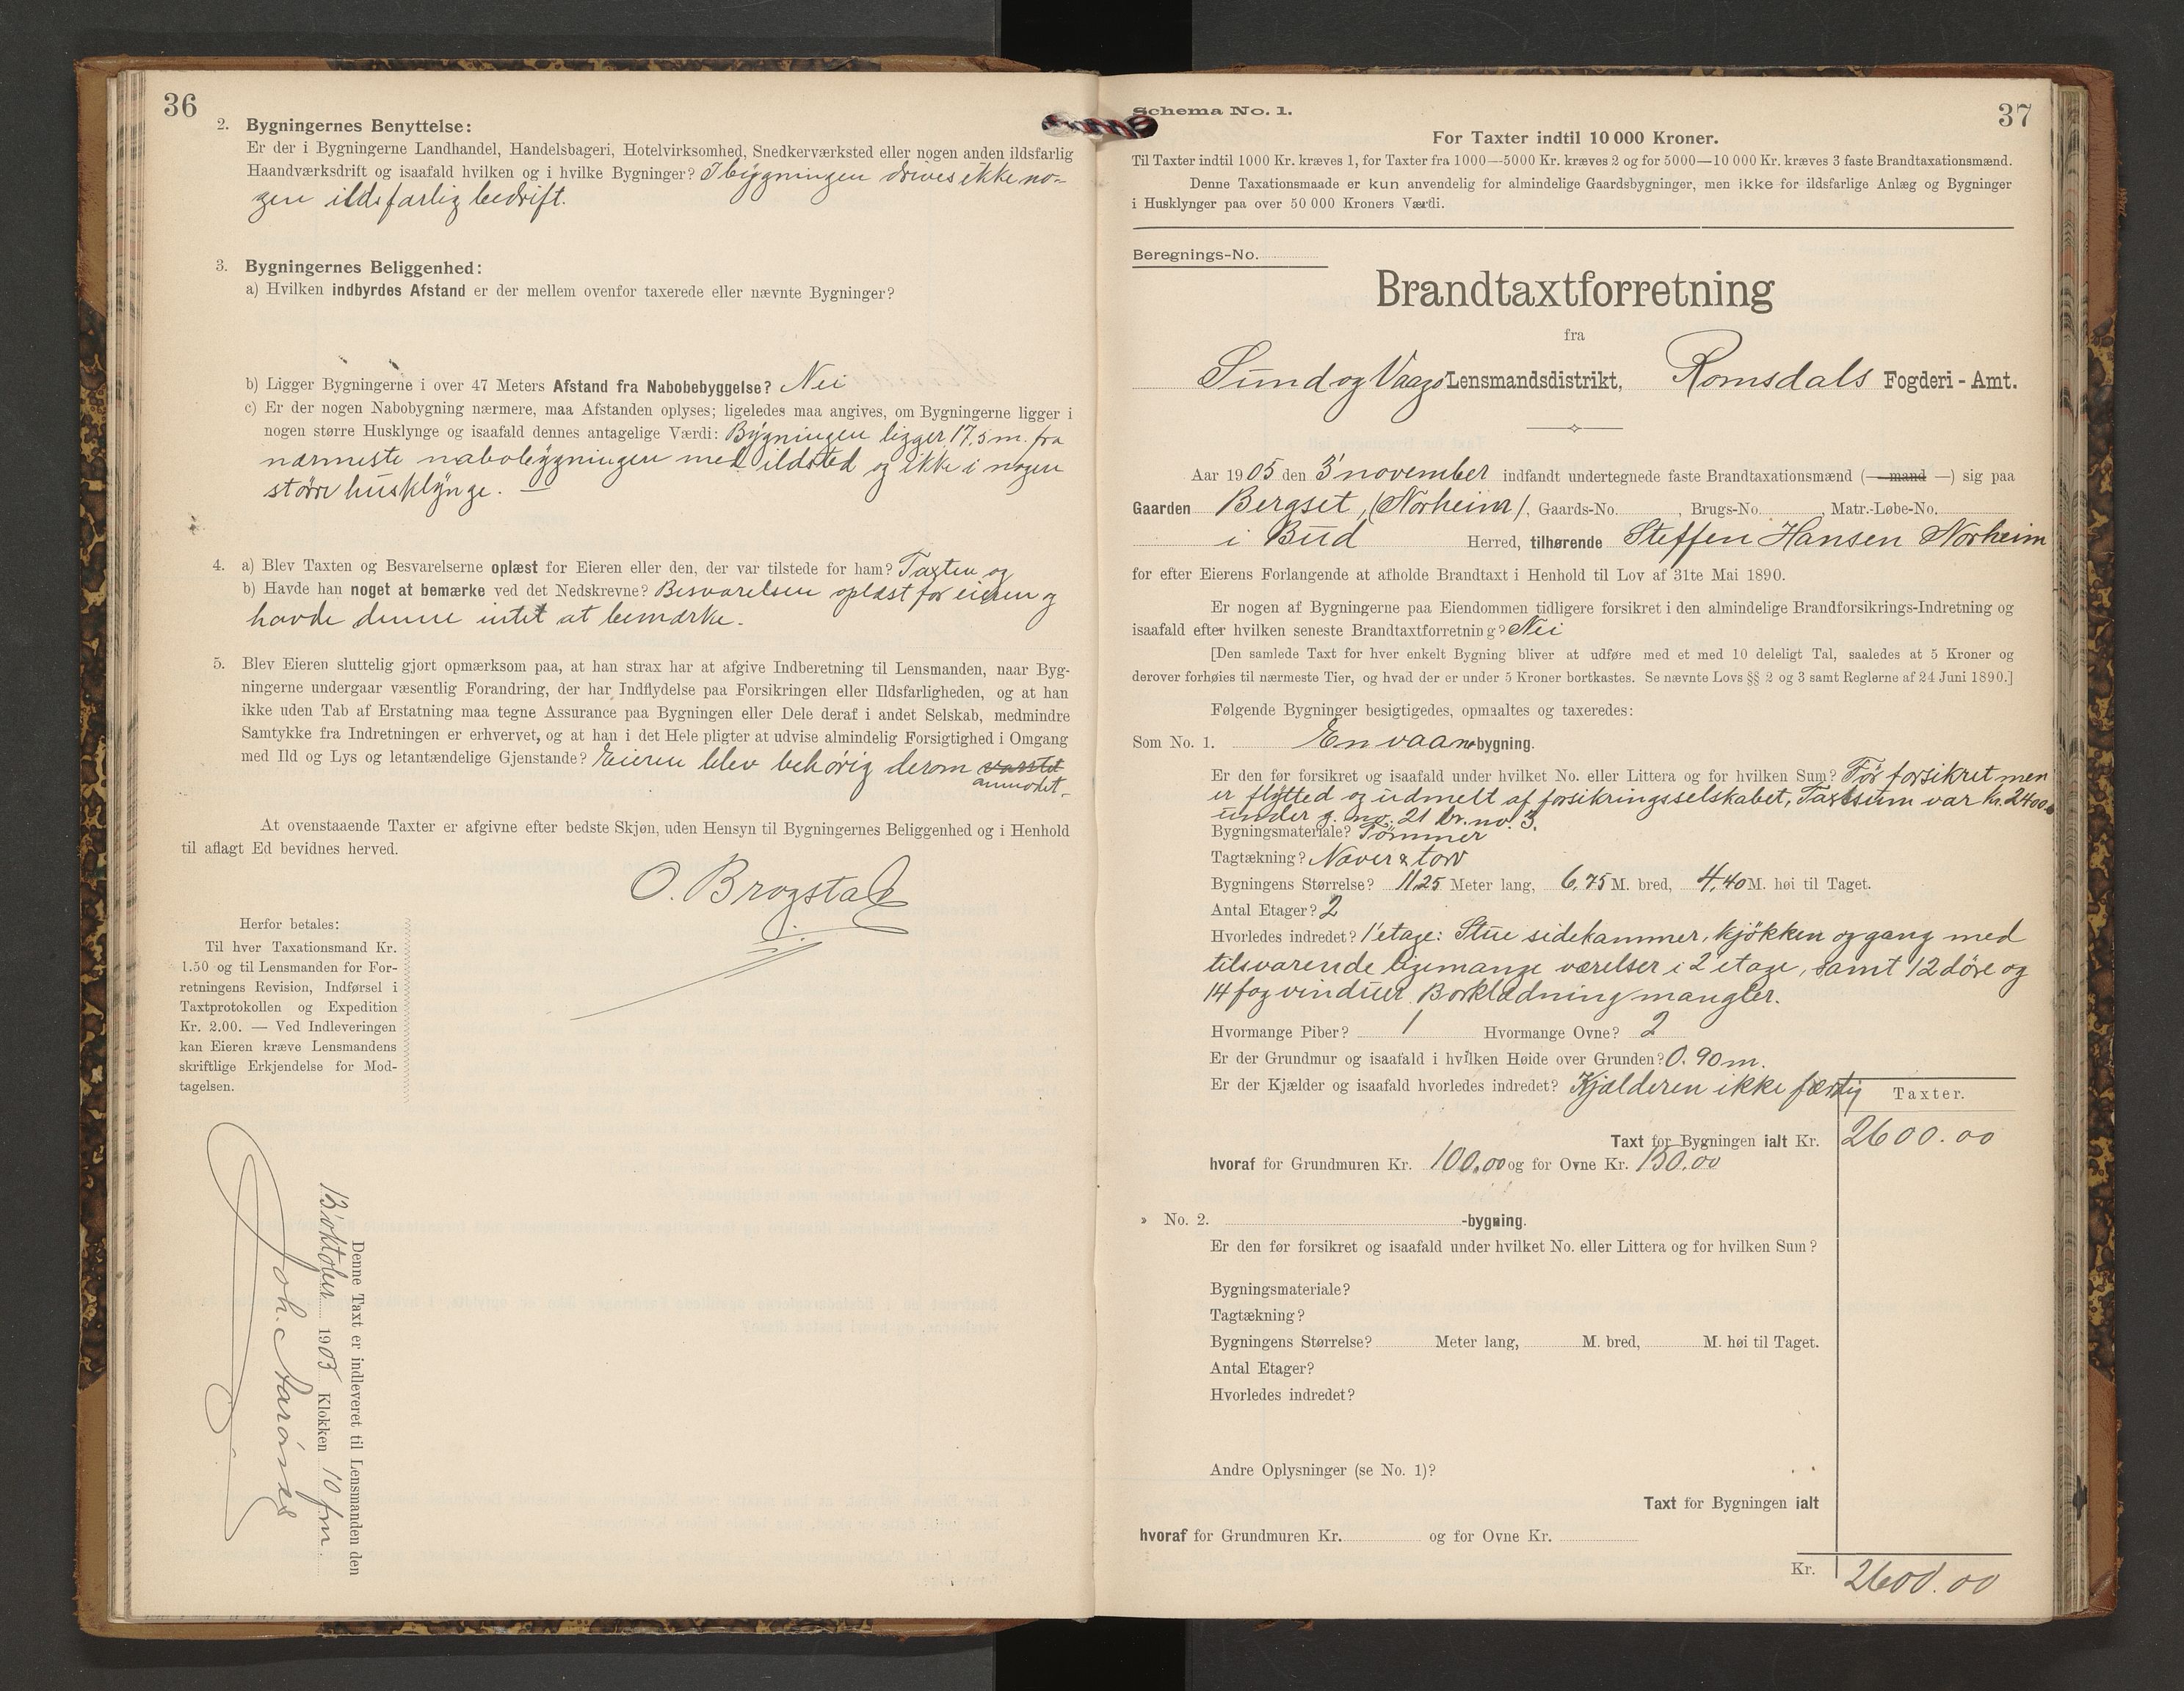 36
2. Bygningernes Benyttelse:
Er der i Bygningerne Landhandel, Handelsbageri, Hotelvirksomhed, Snedkerværksted eller nogen anden ildsfarlig
Haandværksdrift og isaafald hvilken og i hvilke Bygninger? I bygningen drives ikke no-
gen ildsfarlig bedrift.
3. Bygningernes Beliggenhed:
a) Hvilken indbyrdes Afstand er der mellem ovenfor taxerede eller nævnte Bygninger?
b) Ligger Bygningerne i over 47 Meters Afstand fra Nabobebyggelse? Nei
c) Er der nogen Nabobygning nærmere, maa Afstanden oplyses; ligeledes maa angives, om Bygningerne ligger i
nogen større Husklynge og isaafald dennes antagelige Værdi: Bygningen ligger 17,5 m. fra
nærmeste nabobygningen med ildsted og ikke i nogen
större husklynge. —
4. a) Blev Taxten og Besvarelserne oplæst for Eieren eller den, der var tilstede for ham? Taxten og
b) Havde han noget at bemærke ved det Nedskrevne? Besvarelsen oplæst for eieren og
havde denne intet at bemærke.
5. Blev Eieren sluttelig gjort opmærksom paa, at han strax har at afgive Indberetning til Lensmanden, naar Byg-
ningerne undergaar væsentlig Forandring, der har Indflydelse paa Forsikringen eller Ildsfarligheden, og at han
ikke uden Tab af Erstatning maa tegne Assurance paa Bygningen eller Dele deraf i andet Selskab, medmindre
Samtykke fra Indretningen er erhvervet, og at han i det Hele pligter at udvise almindelig Forsigtighed i Omgang
med Ild og Lys og letantændelige Gjenstande? Eieren blev behörig derom
anmodet.
At ovenstaaende Taxter er afgivne efter bedste Skjøn, uden Hensyn til Bygningernes Beliggenhed og i Henhold
til aflagt Ed bevidnes herved.
O. Brogstad
Herfor betales:
Til hver Taxationsmand Kr.
1.50 og til Lensmanden for For-
retningens Revision, Indførsel i
Taxtprotokollen og Expedition
Kr. 2.00. — Ved Indleveringen
kan Eieren kræve Lensmandens
skriftlige Erkjendelse for Mod-
tagelsen.
Denne Taxt er indleveret til Lensmanden den
13' oktober 1905 Klokken 10 fm.
Joh. Aarönes
37
Schema No. 1.
For Taxter indtil 10 000 Kroner.
Til Taxter indtil 1000 Kr. kræves 1, for Taxter fra 1000—5000 Kr. kræves 2 og for 5000—10 000 Kr. kræves 3 faste Brandtaxationsmænd.
Denne Taxationsmaade er kun anvendelig for almindelige Gaardsbygninger, men ikke for ildsfarlige Anlæg og Bygninger
i Husklynger paa over 50 000 Kroners Værdi.
Beregnings-No.
Brandtaxtforretning
fra
Sund og Vaagö Lensmandsdistrikt, Romsdals Fogderi - Amt.
Aar 1905 den 3' november indfandt undertegnede faste Brandtaxationsmænd (— mand —) sig paa
Gaarden Bergset, (Norheim), Gaards-No. , Brugs-No. , Matr.-Løbe-No.
i Bud Herred, tilhørende Steffen Hansen Norheim
for efter Eierens Forlangende at afholde Brandtaxt i Henhold til Lov af 31te Mai 1890.
Er nogen af Bygningerne paa Eiendommen tidligere forsikret i den almindelige Brandforsikrings-Indretning og
isaafald efter hvilken seneste Brandtaxtforretning? Nei
[Den samlede Taxt for hver enkelt Bygning bliver at udføre med et med 10 deleligt Tal, saaledes at 5 Kroner og
derover forhøies til nærmeste Tier, og hvad der er under 5 Kroner bortkastes. Se nævnte Lovs §§ 2 og 3 samt Reglerne af 24 Juni 1890.]
Følgende Bygninger besigtigedes, opmaaltes og taxeredes:
Som No. 1. En vaane-bygning.
Er den før forsikret og isaafald under hvilket No. eller Littera og for hvilken Sum? Før forsikret men
er flytted og udmelt af forsikringsselskabet, Taxtsum var kr. 2400
under g. no. 21 br. no. 3.
Bygningsmateriale? Tömmer
Tagtækning? Næver & torv
Bygningens Størrelse? 11,25 Meter lang, 6,75 M. bred, 4,40 M. høi til Taget.
Antal Etager? 2
Hvorledes indredet? 1' etage: Stue sidekammer, kjökken og gang med
tilsvarende ligemange værelser i 2' etage, samt 12 döre og
14 fag vinduer. Bordklædning mangler.
Hvormange Piber? 1 Hvormange Ovne? 2
Er der Grundmur og isaafald i hvilken Høide over Grunden? 0.90 m.
Er der Kjælder og isaafald hvorledes indredet? Kjælderen ikke færdig
Taxter.
Taxt for Bygningen ialt Kr. 2600.00
hvoraf for Grundmuren Kr. 100.00 og for Ovne Kr. 150.00
» No. 2. -bygning.
Er den før forsikret og isaafald under hvilket No. eller Littera og for hvilken Sum?
Bygningsmateriale?
Tagtækning?
Bygningens Størrelse? Meter lang, M. bred, M. høi til Taget.
Antal Etager?
Hvorledes indredet?
Andre Oplysninger (se No. 1)?
Taxt for Bygningen ialt
hvoraf for Grundmuren Kr. og for Ovne Kr.
Kr. 2600.00